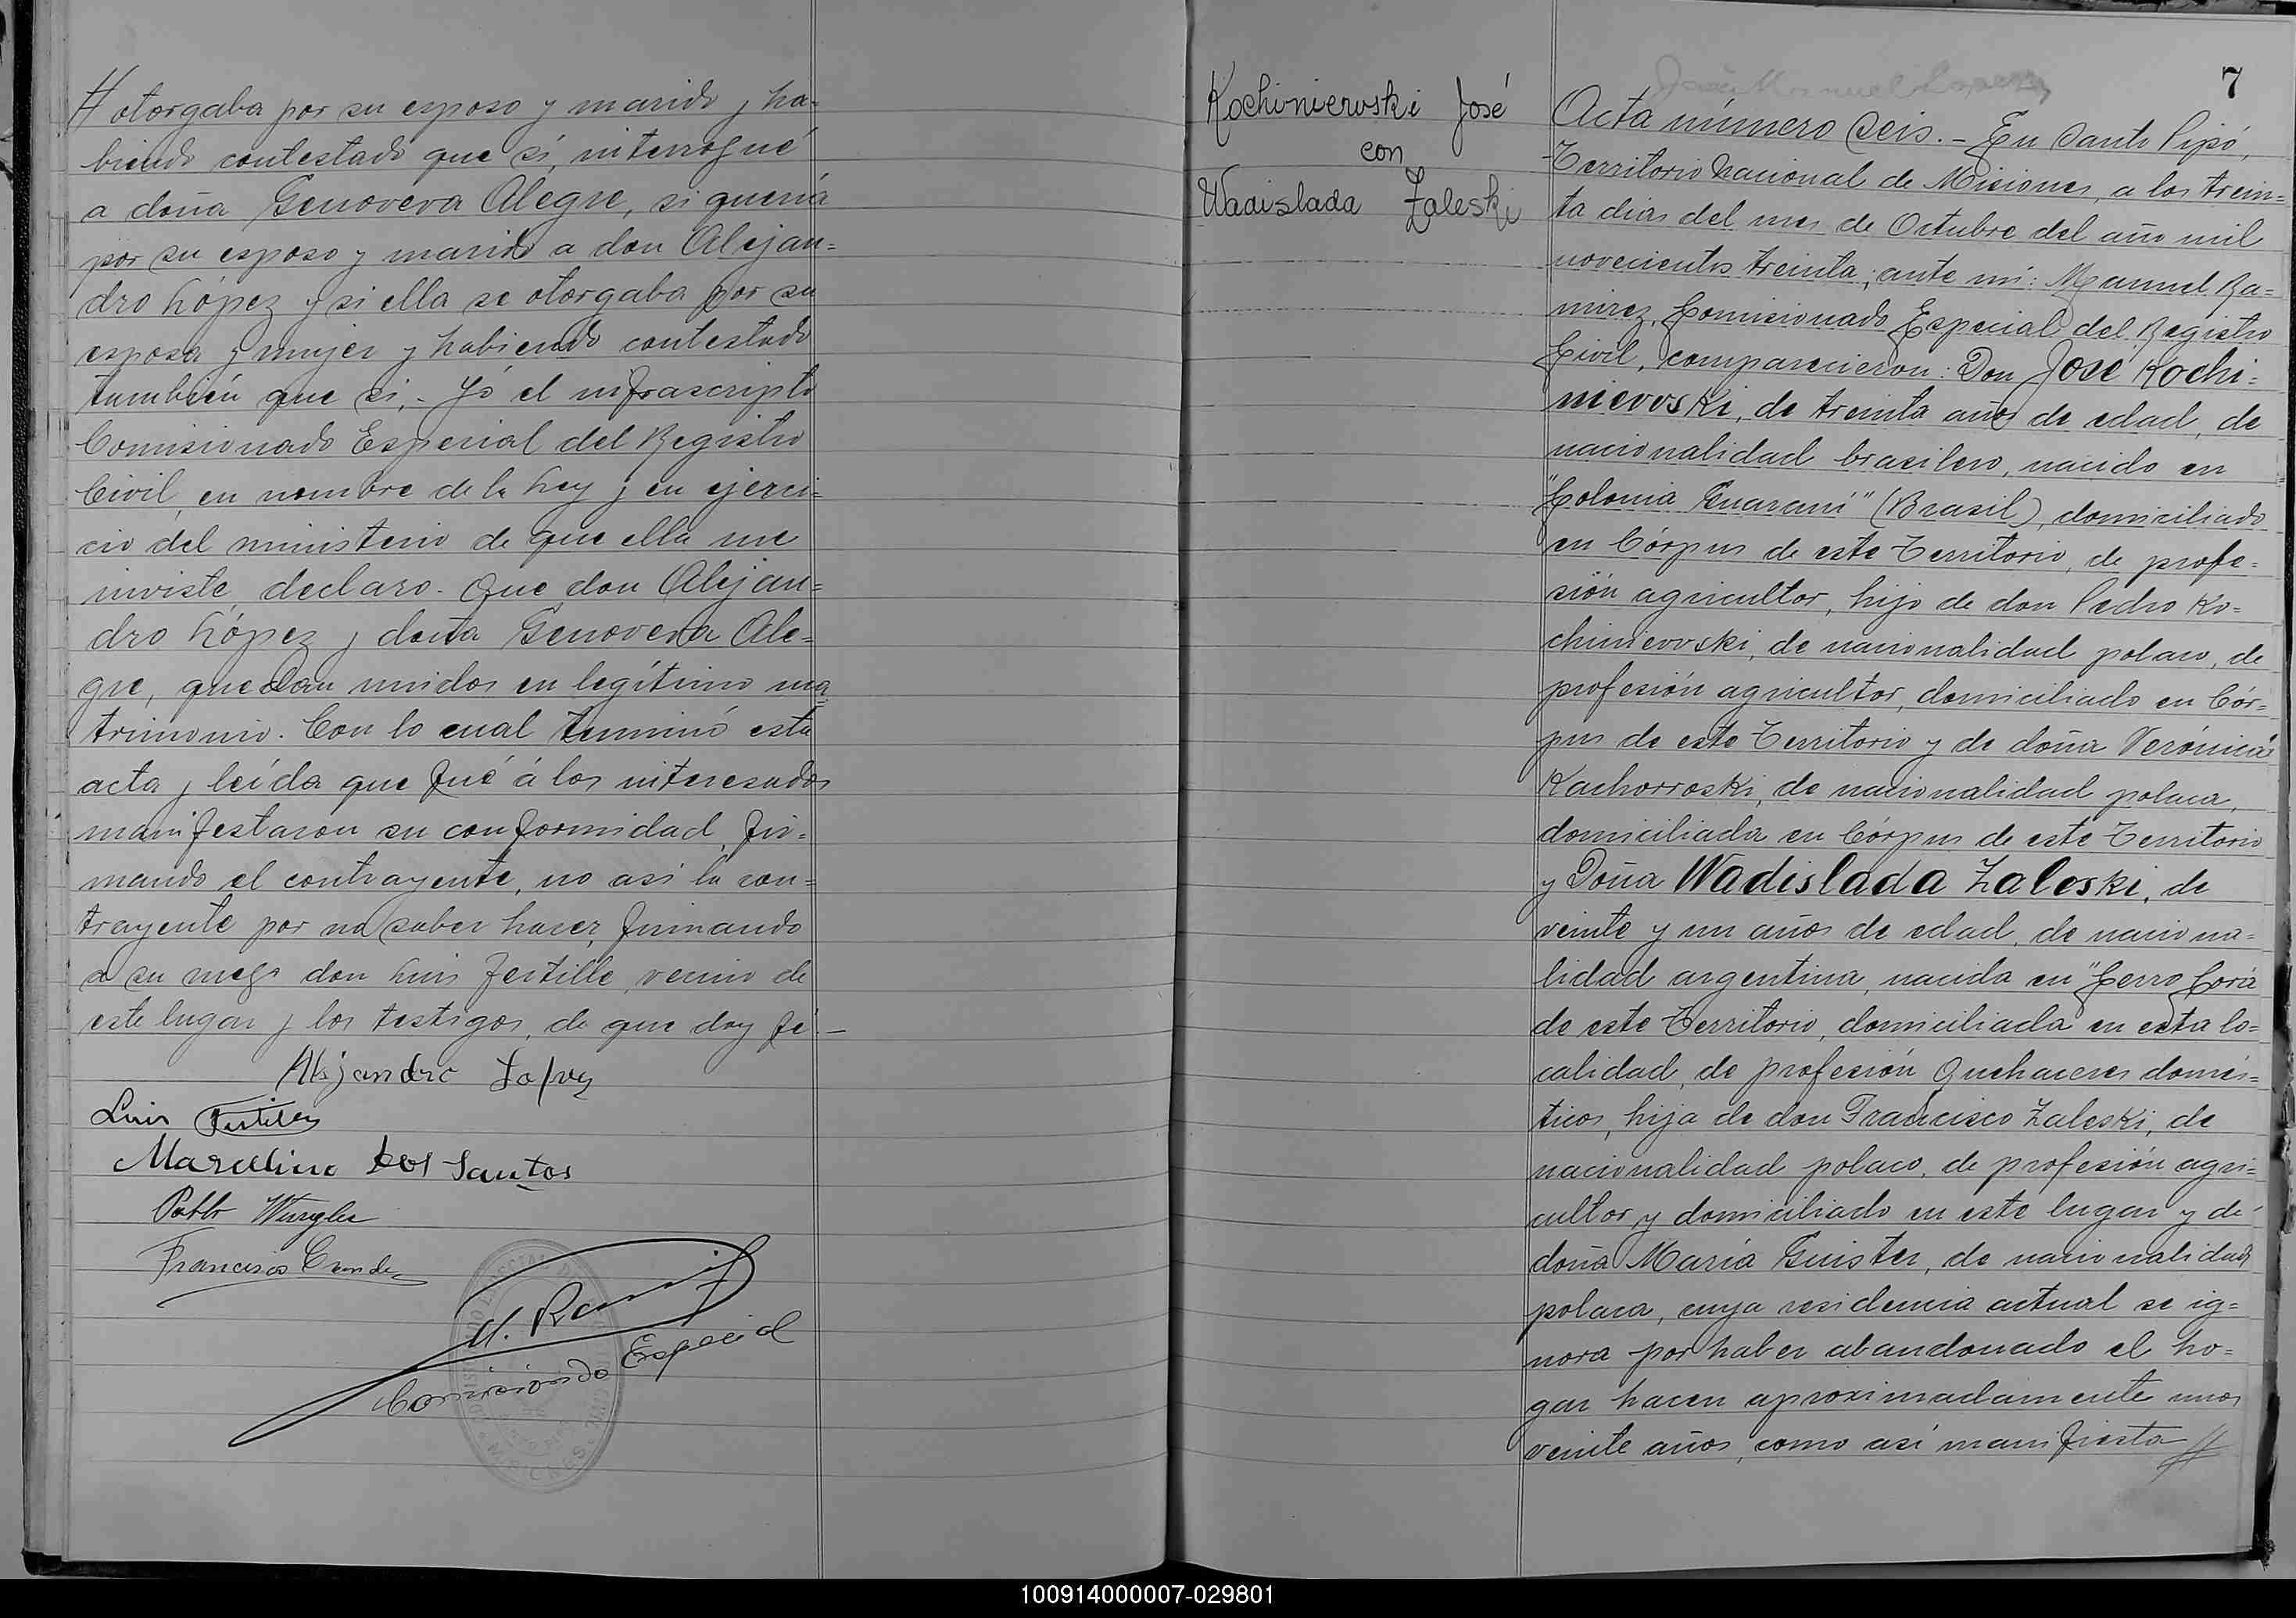 # otorgaba por su esposo y marido y ha=
biendo contestado que sí, interrogué
a doña Genoveva Alegre, si quería
por su esposo y marido a don Alejan=
dro López y si ella se otorgaba por su
esposa y mujer y habiendo contestado
también que si.- Yó el infrascripto
Comisionado Especial del Registro
Civil, en nombre de la Ley y en ejerci=
cio del ministerio de que ella me
inviste, declaro. Que don Alejan=
dro López y doña Genoveva Ale=
gre, quedan unidos en legítimo ma=
trimonio. Con lo cual terminó esta
acta y leída que fué á los interesados
manifestaron su conformidad, fir=
mando el contrayente, no asi la con=
trayente por no saber hacer, firmando
a su ruego don Luis Fertille, vecino de
este lugar y los testigos, de que doy fé.-
Alejandro Lopez
Luis
Marcelino Dos Santos
Pablo Wurgler
Francisco
M. Ramirez
Comisionado Especial
Kochinievski José
con
Wadislada Zaleski
7
Acta número Seis.- En Santo Pipó,
Territorio Nacional de Misiones, a los trein=
ta dias del mes de Octubre del año mil
novecientos treinta; ante mí: Manuel Ra=
mirez, Comisionado Especial del Registro
Civil, comparecieron: Don José Kochi=
nievski, de treinta años de edad, de
nacionalidad brasilero, nacido en
"Colonia Guaraní" (Brasil), domiciliado
en Córpus de este Territorio, de profe=
sión agricultor, hijo de don Pedro Ko=
chinievski, de nacionalidad polaco, de
profesión agricultor, domiciliado en Cór=
pus de este Territorio y de doña Verónica
Kachorroski, de nacionalidad polaca,
domiciliada en Córpus de este Territorio
y Doña Wadislada Zaleski, de
veinte y un años de edad, de naciona=
lidad argentina, nacida en "Cerro Corá
de este Territorio, domiciliada en esta lo=
calidad, de profesión Quehaceres domés=
ticos, hija de don Francisco Zaleski, de
nacionalidad polaco, de profesión agri=
cultor y domiciliado en este lugar y de
doña María Guister, de nacionalidad
polaca, cuya residencia actual se ig=
nora por haber abandonado el ho=
gar hacen aproximadamente unos
veinte años, como así manifiesta #
100914000007-029801